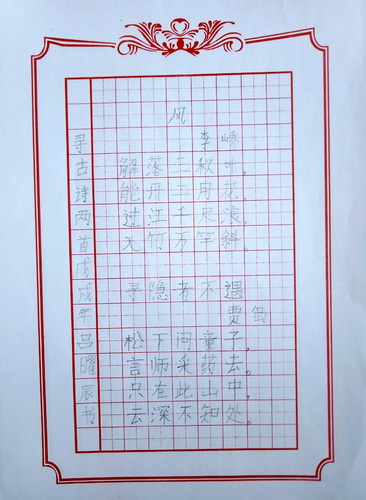 风
李峤
解落三秋叶。
能开二月花。
过江千尺浪。
入竹万竿斜。
寻隐者不遇
贾岛
松下问童子。
言师采药去。
只在此山中。
云深不知处。
寻古诗两首戊戌年吕曜辰书